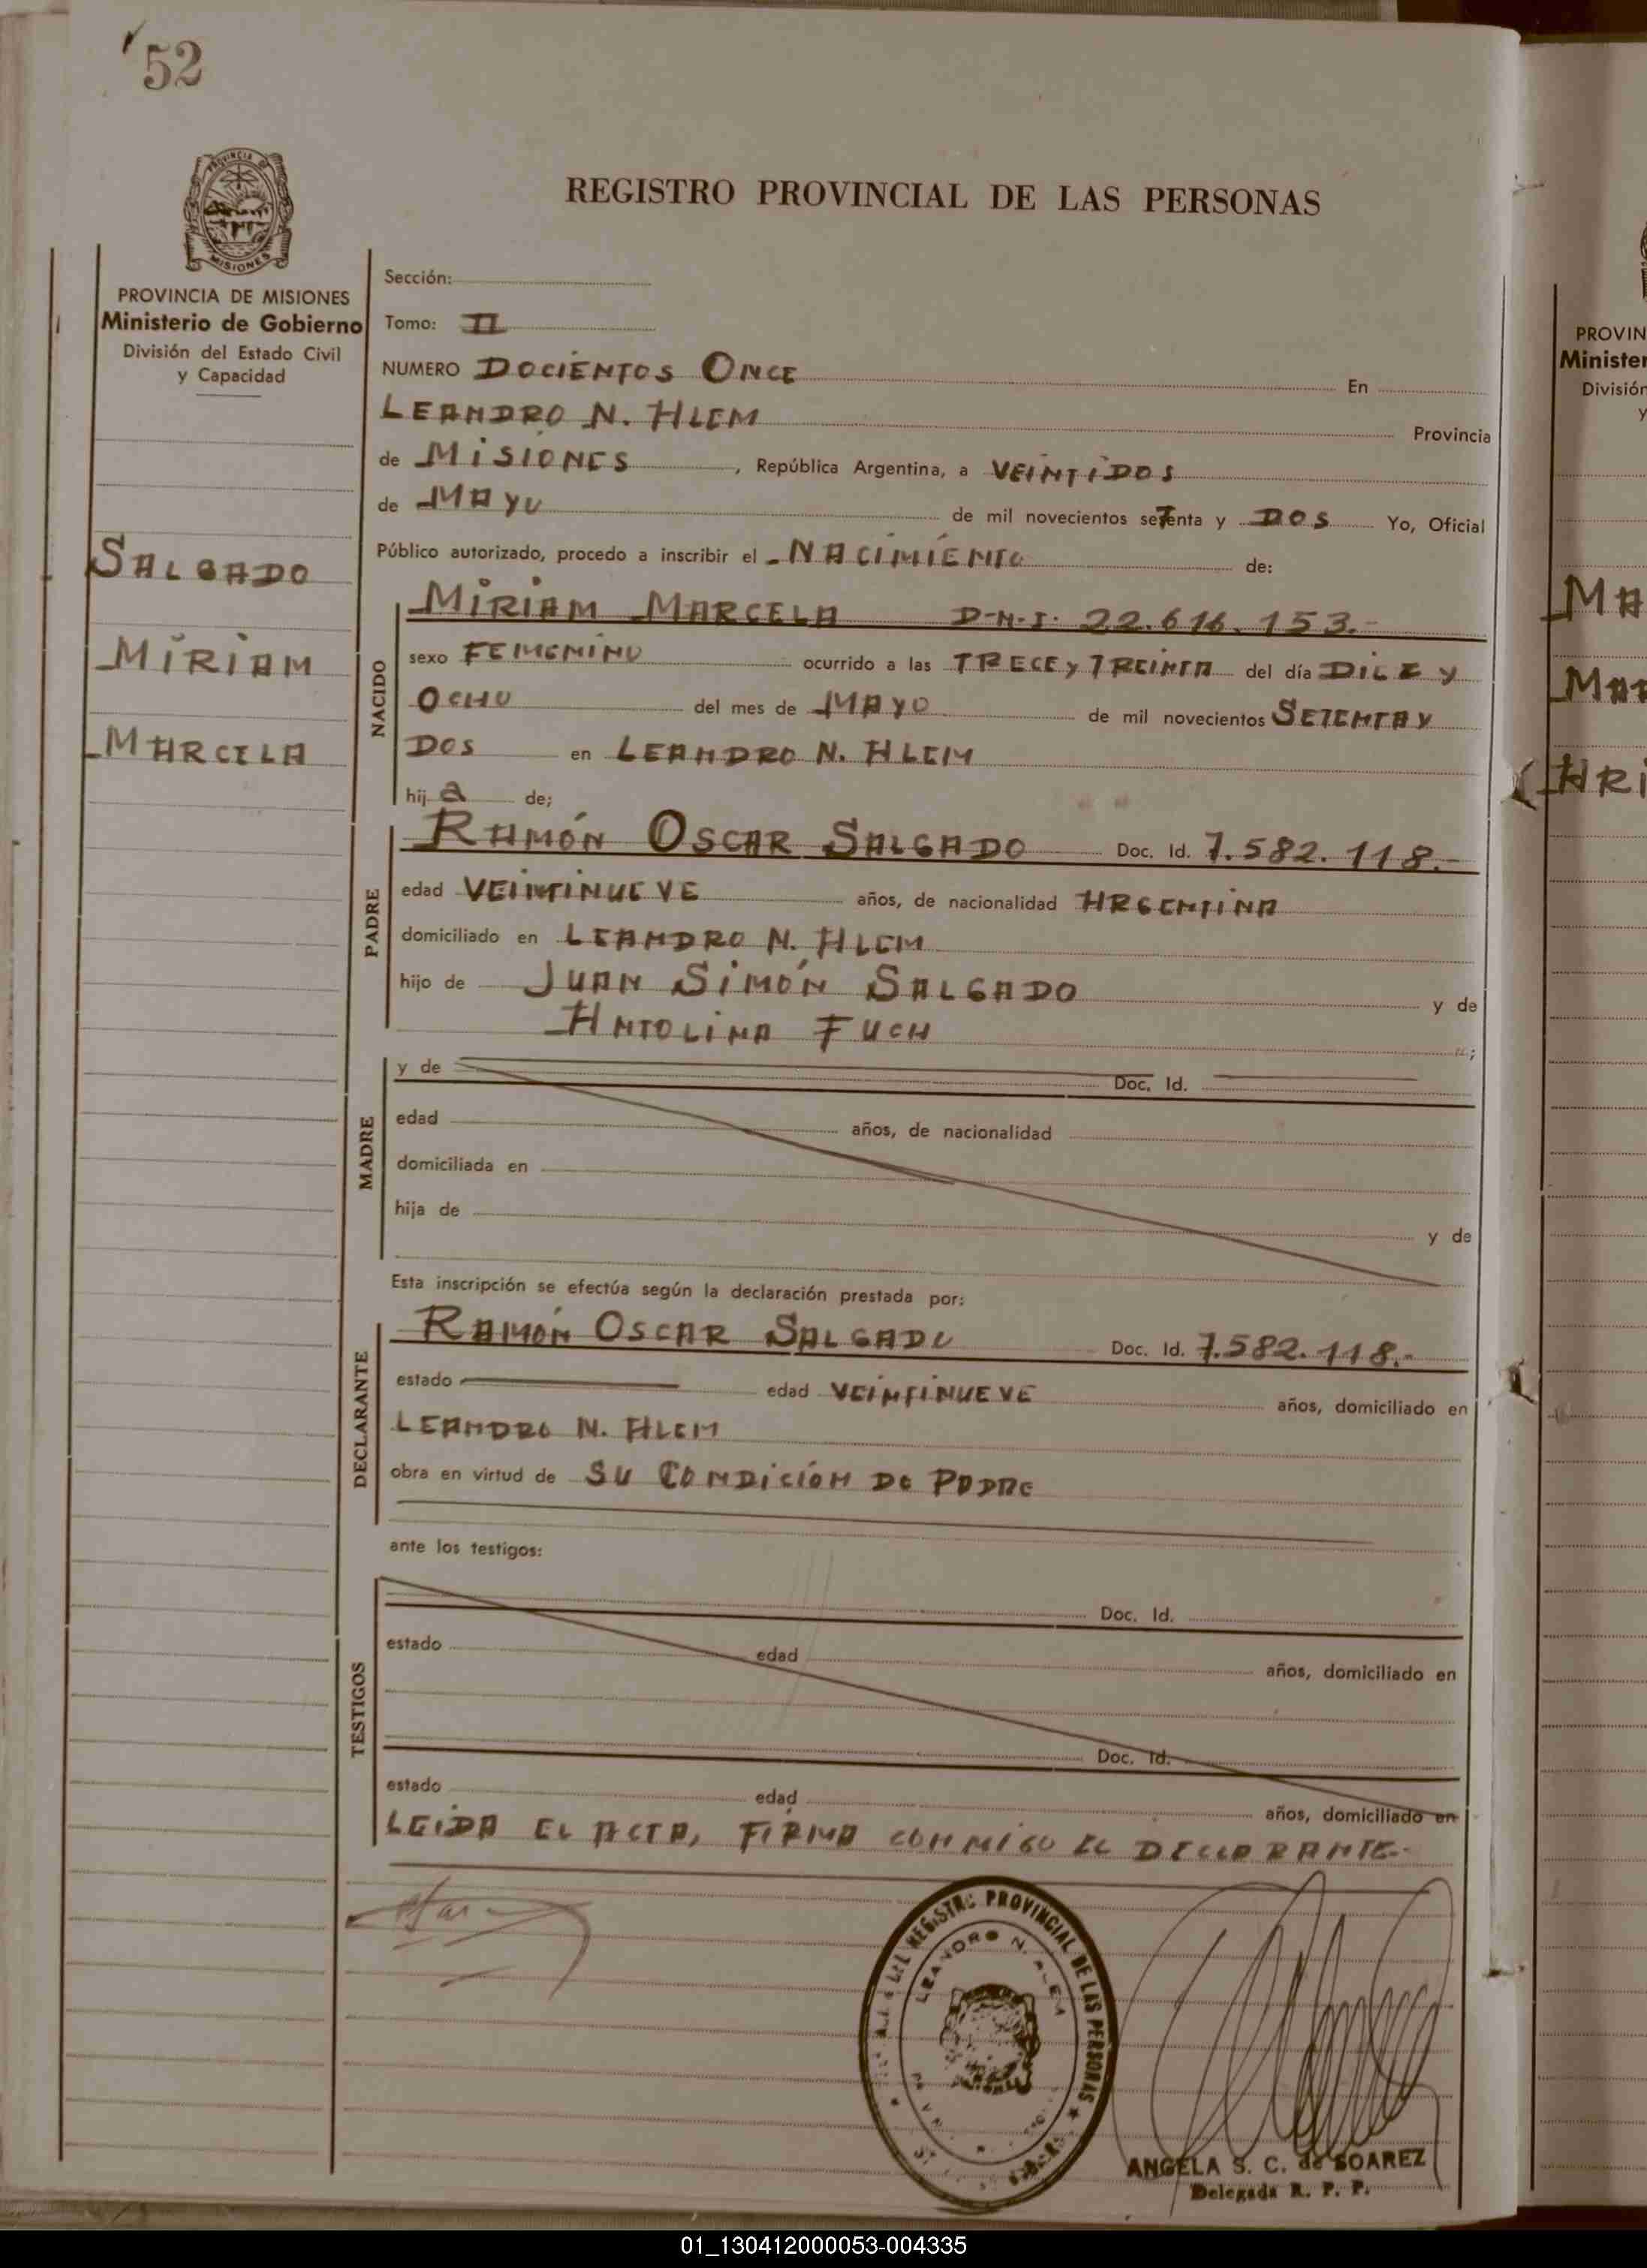 52
REGISTRO PROVINCIAL DE LAS PERSONAS
PROVINCIA DE MISIONES
MISIONES
PROVINCIA DE MISIONES
Ministerio de Gobierno
División del Estado Civil
y Capacidad
SALGADO
MIRIAM
MARCELA
Sección:
Tomo: II
NUMERO DOCIENTOS ONCE En
LEANDRO N. ALEM Provincia
de MISIONES, República Argentina, a VEINTIDOS
de MAYO de mil novecientos setenta y DOS Yo, Oficial
Público autorizado, procedo a inscribir el NACIMIENTO de:
NACIDO
MIRIAM MARCELA D-N-I- 22.616.153.-
sexo FEMENINO ocurrido a las TRECE y TREINTA del día DIEZ y
OCHO del mes de MAYO de mil novecientos SETENTA y
DOS en LEANDRO N. ALEM
hija de;
PADRE
RAMÓN OSCAR SALGADO Doc. Id. 7.582.118.-
edad VEINTINUEVE años, de nacionalidad ARGENTINA
domiciliado en LEANDRO N. ALEM
hijo de JUAN SIMÓN SALGADO y de
ANTOLINA FUCH
MADRE
y de Doc. Id.
edad años, de nacionalidad
domiciliada en
hija de y de
Esta inscripción se efectúa según la declaración prestada por:
DECLARANTE
RAMÓN OSCAR SALGADO Doc. Id. 7.582.118.-
estado edad VEINTINUEVE años, domiciliado en
LEANDRO N. ALEM
obra en virtud de SU CONDICIÓN DE PADRE
ante los testigos:
TESTIGOS
Doc. Id.
estado edad años, domiciliado en
Doc. Id.
estado edad años, domiciliado en
LEIDA EL ACTA, FIRMA CONMIGO EL DECLARANTE-
REGISTRO PROVINCIAL DE LAS PERSONAS
LEANDRO N. ALEM
ANGELA S. C. de SOAREZ
Delegada R. P. P.
PROVIN
Minister
División
y
MA
MAR
ARI
01_130412000053-004335